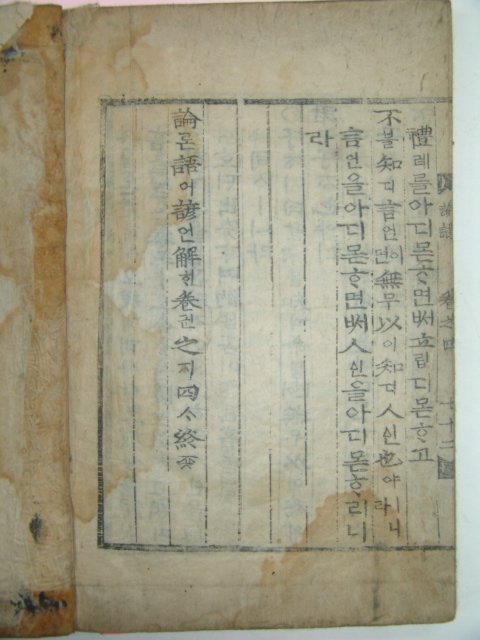 禮례를아디몯ᄒᆞ면ᄡᅥ立립디몯ᄒᆞ고
不블知디言언이면無무以이知디人신也야ㅣ니라
言언을아디몯ᄒᆞ면ᄡᅥ人신을아디몯ᄒᆞ리니
라
論론語어諺언解ᄒᆡ卷권之지四ᄉᆞ終죵